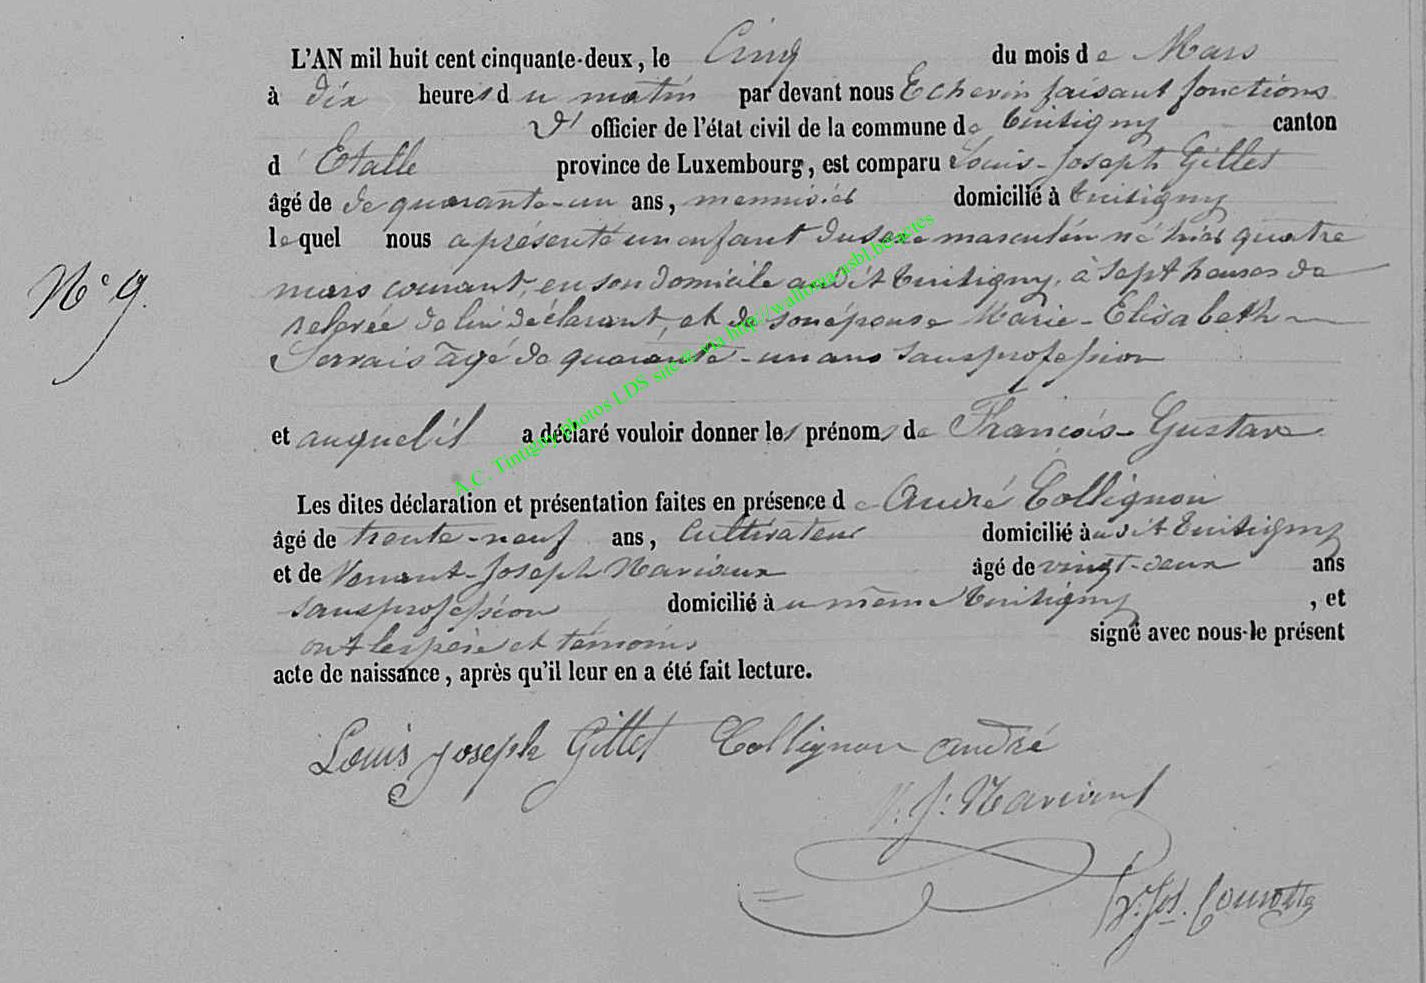 L'AN mil huit cent cinquante-deux, le Cinq du mois de Mars
à dix heures du matin par devant nous Echevin faisant fonctions
d' officier de l'état civil de la commune de tintigny canton
d' Etalle province de Luxembourg, est comparu Louis-Joseph Gillet
âgé de de quarante-un ans, menuisier domicilié à tintigny
lequel nous a présenté un enfant du sexe masculin né hier quatre
N° 9.
mars courant, en son domicile audit tintigny, à sept heures de
relevée de lui déclarant, et de son épouse Marie-Elisabeth
Servais âgé de quarante-un ans sans profession
et auquel il a déclaré vouloir donner les prénoms de François-Gustave
A.C. Tintigny photos LDS site & via http://wallonia-asbl.be/actes
Les dites déclaration et présentation faites en présence de André Collignon
âgé de trente-neuf ans, Cultivateur domicilié audit tintigny
et de Venant-Joseph Naviaux âgé de vingt-deux ans
sans profession domicilié au même tintigny , et
ont les père et témoins signé avec nous-le présent
acte de naissance, après qu'il leur en a été fait lecture.
Louis joseph Gillet Collignon andré
V. J.